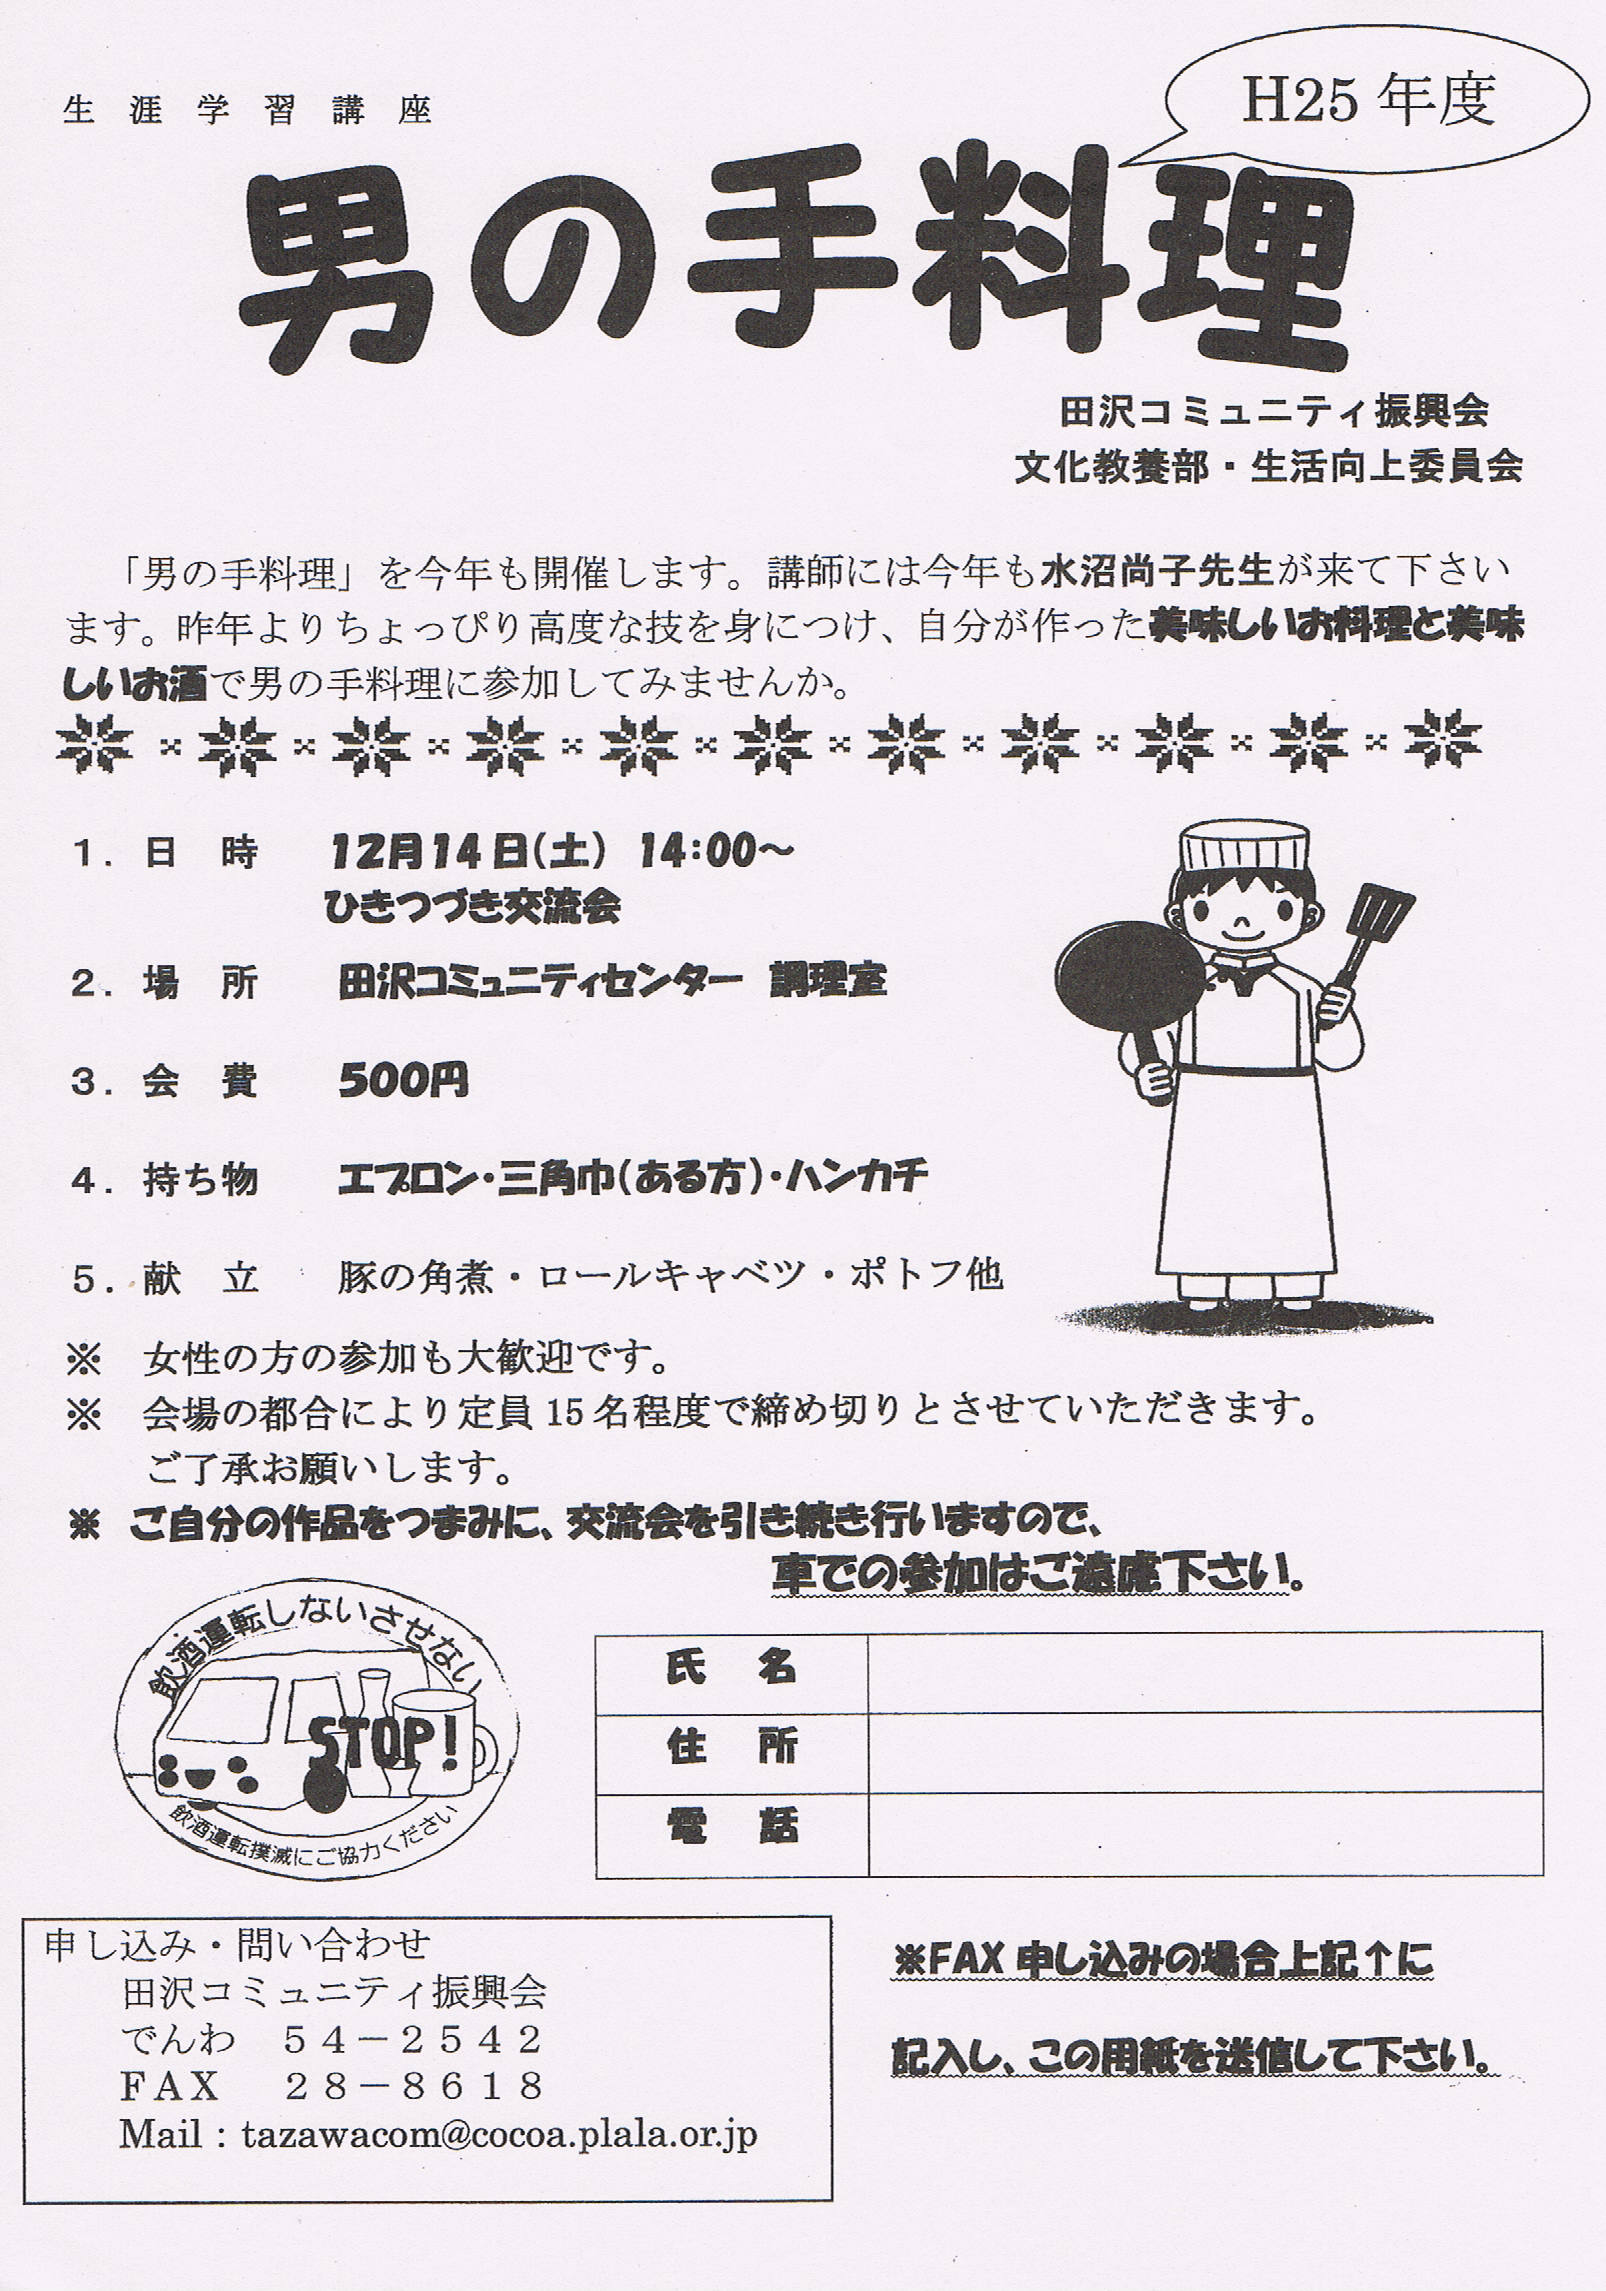 H25 年度
生涯学習講座
男の手料理
田沢コミュニティ振興会
文化教養部・生活向上委員会
「男の手料理」を今年も開催します。講師には今年も水沼尚子先生が来て下さい
ます。昨年よりちょっぴり高度な技を身につけ、自分が作った美味しいお料理と美味
しいお酒で男の手料理に参加してみませんか。
１．日　時　　12月14日(土)　14:00～
ひきつづき交流会
２．場　所　　田沢コミュニティセンター　調理室
３．会　費　　500円
４．持ち物　　エプロン・三角巾(ある方)・ハンカチ
５．献　立　　豚の角煮・ロールキャベツ・ポトフ他
※　女性の方の参加も大歓迎です。
※　会場の都合により定員 15 名程度で締め切りとさせていただきます。
ご了承お願いします。
※　ご自分の作品をつまみに、交流会を引き続き行いますので、
車での参加はご遠慮下さい。
飲酒運転しないさせない
STOP!
飲酒運転撲滅にご協力ください
氏　名
住　所
電　話
申し込み・問い合わせ
田沢コミュニティ振興会
でんわ　５４－２５４２
ＦＡＸ　２８－８６１８
Mail：tazawacom@cocoa.plala.or.jp
※FAX 申し込みの場合上記↑に
記入し、この用紙を送信して下さい。